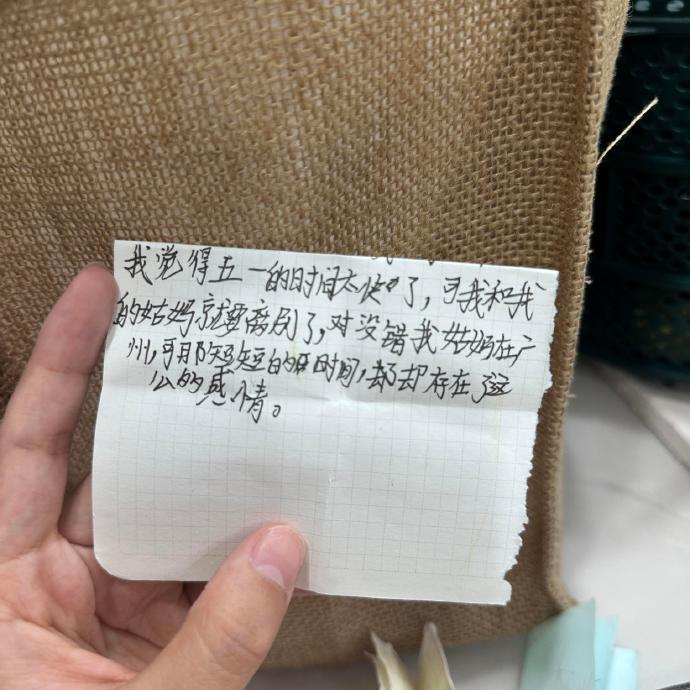 我觉得五一的时间太快了，可我和我
的姑妈就要离别了，对没错我姑妈在广
州，可那短短的时间，却存在这
么的感情。